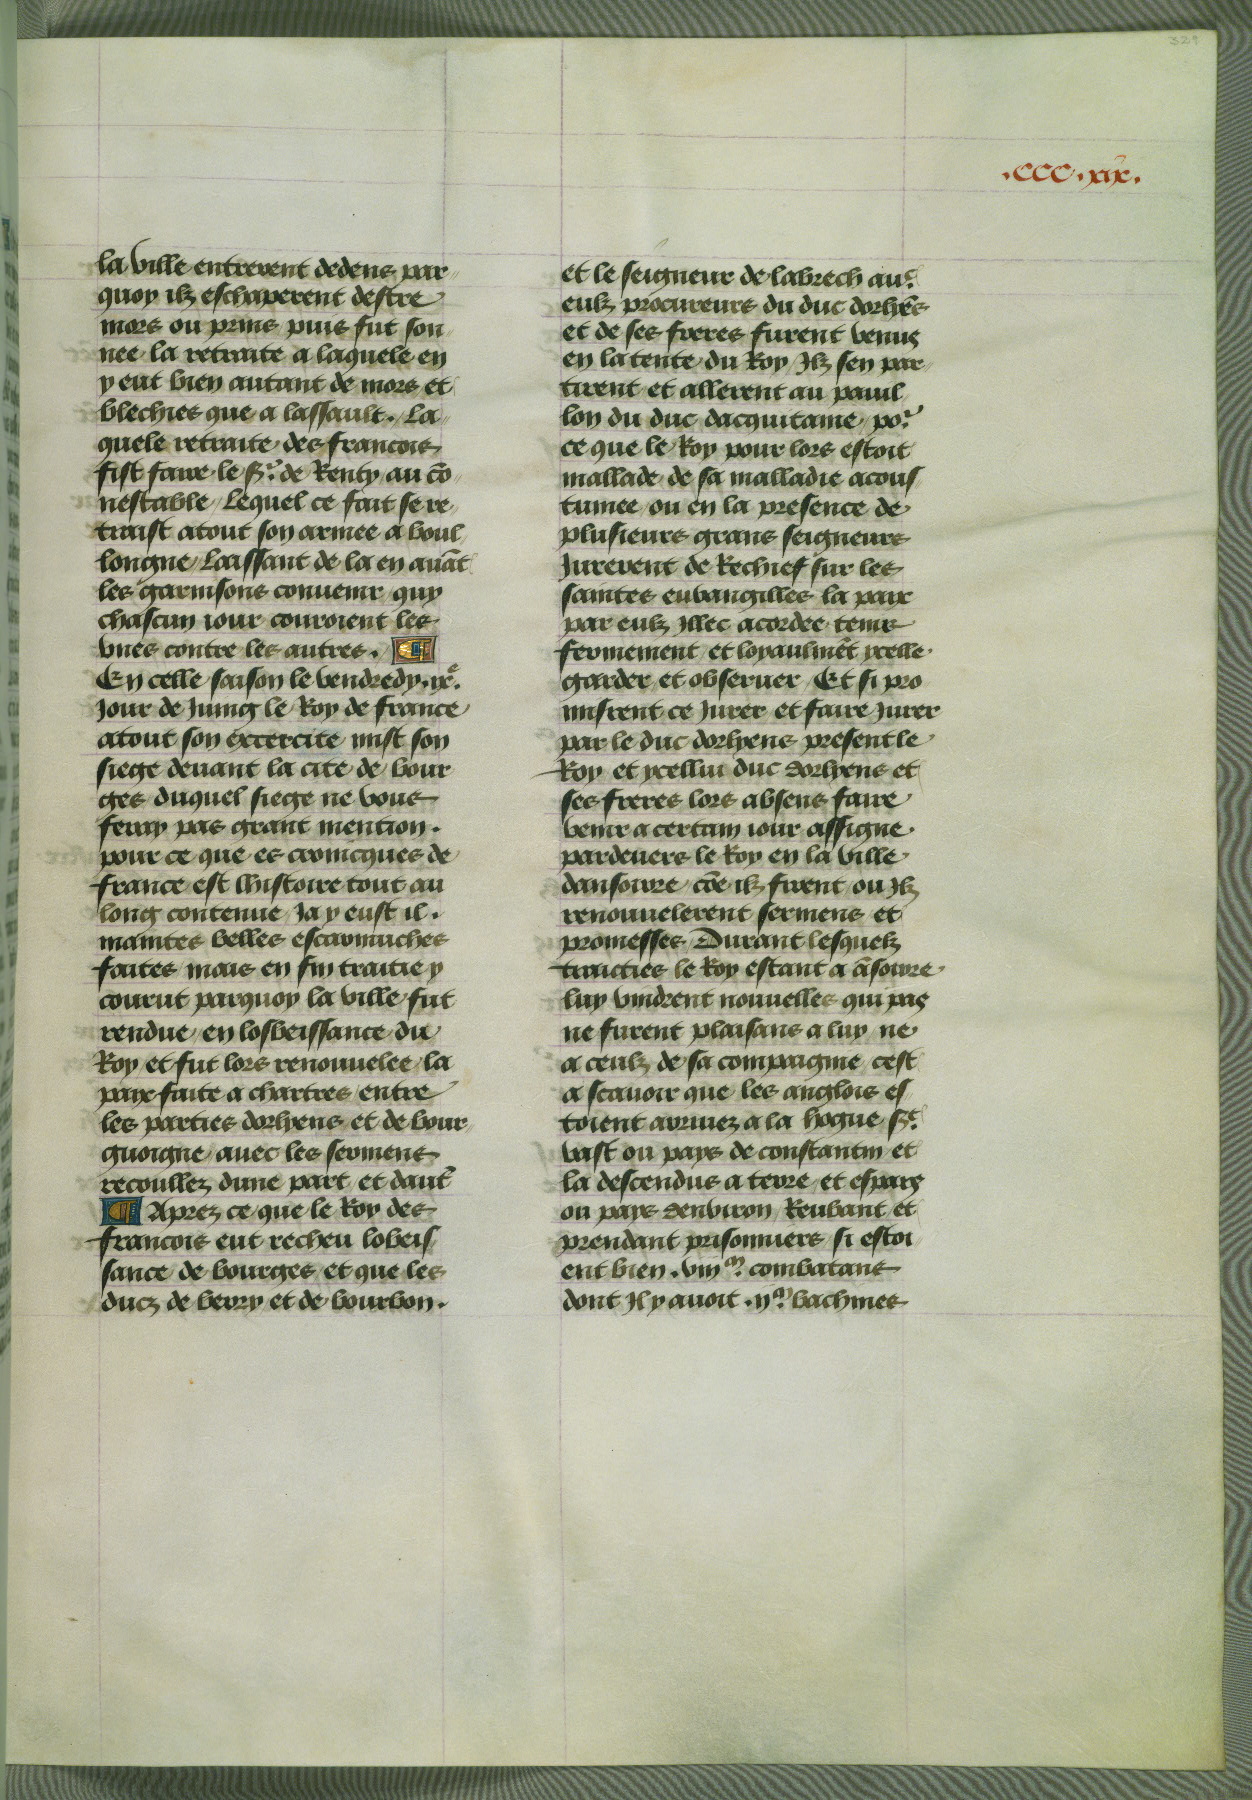 329
.CCC.xix.
la ville entrerent dedens par
quoy ilz eschaperent destre
mors ou prins puis fut son
nee la retraite a laquele en
y eut bien autant de mors et
blechies que a lassault. La
quele retraite des francois
fist faire le Sr. de Renty au cō
nestable Lequel ce fait se re
traist atout son armee a boul
longne Laissant de la en auāt
les garnisons conuenir quy
chascun iour couroient les
vnes contre les autres.
En celle saison le vendredy .ixe.
Jour de Juing le Roy de france
atout son excercite mist son
siege deuant la cite de bour
ges duquel siege ne vous
feray pas grant mention.
pour ce que es cronicques de
france est lhistoire tout au
long contenue Ja y eust il.
maintes belles escarmuches
faites mais en fin traitie y
courut parquoy la ville fut
rendue en losbeissance du
Roy et fut lors renouuelee la
paix faite a chartres entre
les parties dorlyens et de bour
guoigne auec les sermens
recoullez dune part et daut̄
Aprez ce que le Roy des
francois eut recheu lobeis
sance de bourges et que les
ducz de berry et de bourbon.
et le seigneur de labrech auec
eulz procureurs du duc dorlyēs
et de ses freres furent venus
en la tente du Roy Ilz sen par
tirent et allerent au pauil
lon du duc dacquitaine por
ce que le Roy pour lors estoit
mallade de sa malladie acous
tumee ou en la presence de
plusieurs grans seigneurs
Jurerent de Rechief sur les
saintes euuangilles la paix
par eulz Illec acordee tenir
fermement et loyaulmēt ycelle
garder et obseruer Et si pro
misrent ce Jurer et faire Jurer
par le duc dorlyens present le
Roy et ycellui duc dorlyens et
ses freres lors absens faire
venir a certain iour assigne
pardeuers le Roy en la ville
dansoirre cōe ilz firent ou Ilz
renouuelerent sermens et
promesses Durant lesquelz
traicties le Roy estant a āsoirre
luy vindrent nouuelles qui pas
ne furent plaisans a luy ne
a ceulz de sa compaignie cest
a scauoir que les anglois es
toient arriuez a la hogue St.
vast ou pays de constantin et
la descendus a terre et espars
ou pays denuiron Reubant et
prendant prisonniers si estoi
ent bien .viijm. combatans
dont Il y auoit .ijm. bachines